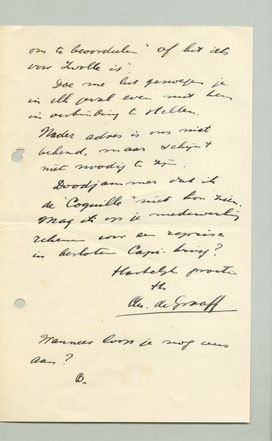 om te beoordeelen of het iets
voor Zwolle is.
Doe me het genoegen je
in elk geval even met hem
in verbinding te stellen.
Nader adres is ons niet
bekend, maar schijnt
niet noodig te zijn.
Doodjammer dat ik
de "Coquille" niet kon zien.
Mag ik op je medewerking
rekenen voor een reprise
in besloten kring?
Hartelijk groeten
Chr. de Graaff
Wanneer kom je nog eens
aan?
B.